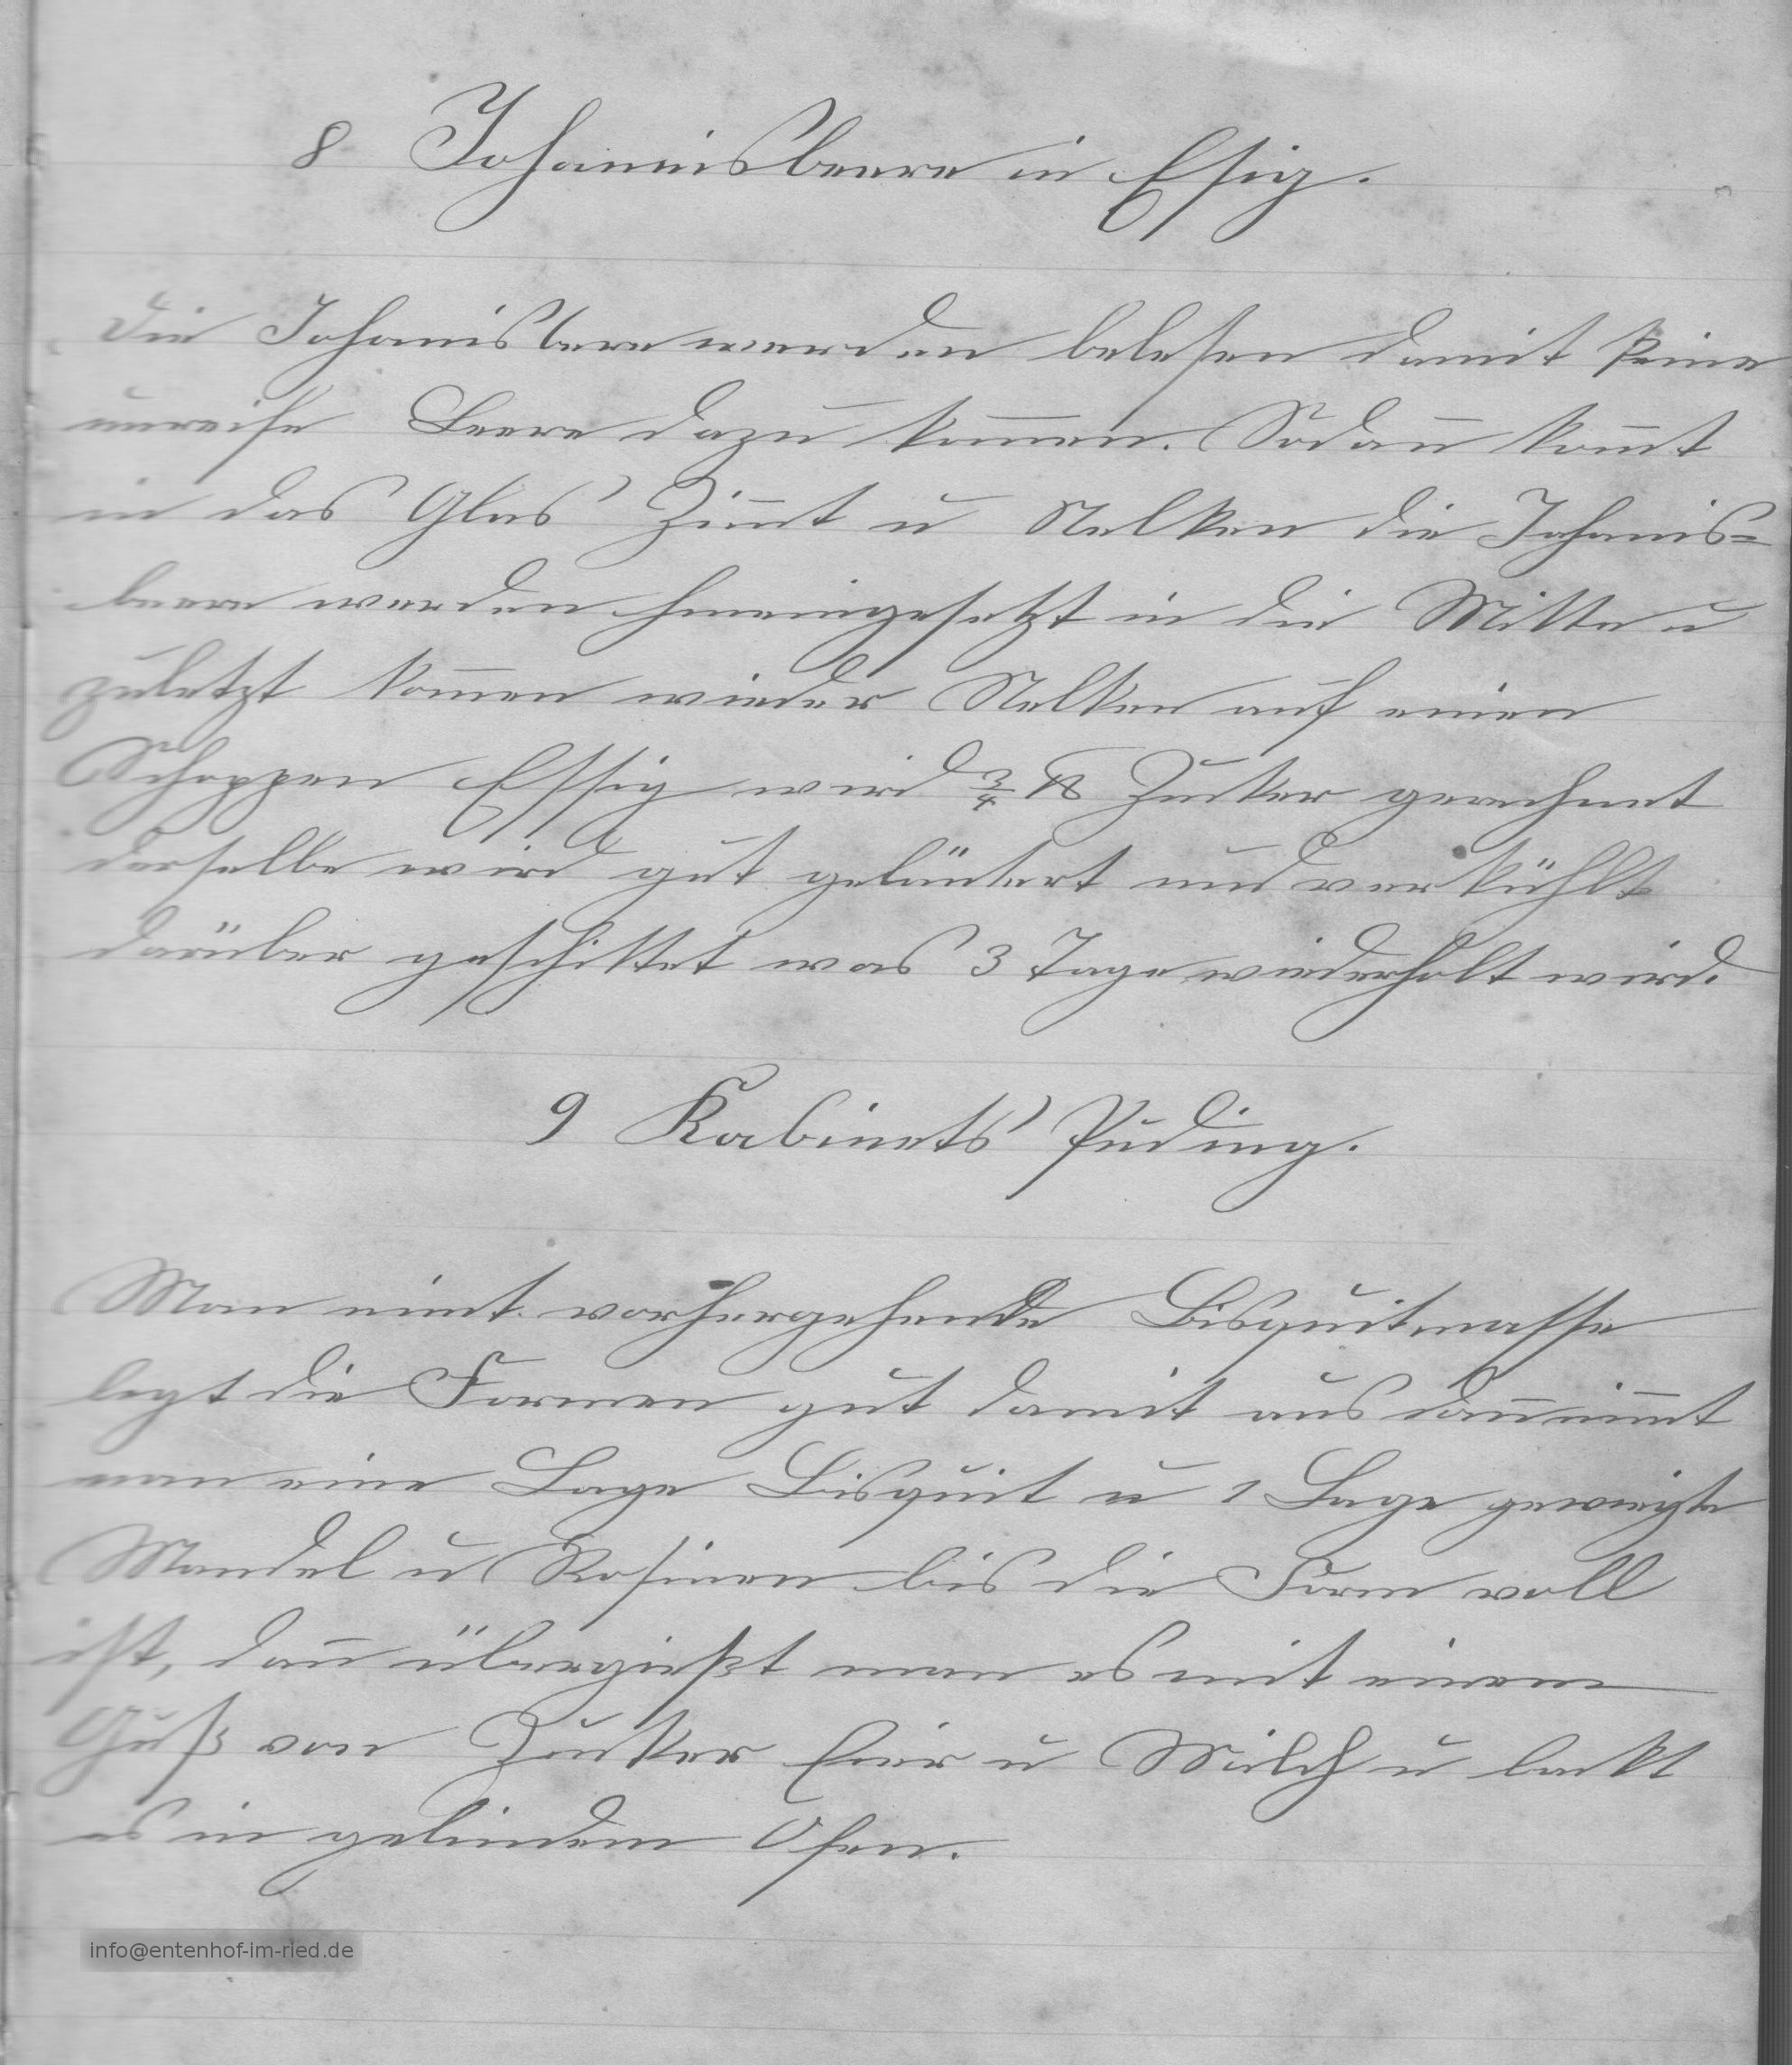 8 Johannisbeere in Esig.
Die Johanisbere werden belesen damit keine
unreife Beere dazu kom̄en. Sodan̄ kom̄t
in das Glas Zim̄t u Nelken die Johanis=
beere werden hineingesetzt in die Mitte u
zuletzt kom̄en wieder Nelken auf einen
Schoppen Essig wird ¾ ℔ Zucker gerechnet
derselbe wird gut geläutert und verkühlt
darüber geschittet was 3 Tage wiederholt wird.
9 Kabinets Puding.
Man nimt vorhergehende Bisquitmasse
legt die Formen gut damit aus dan̄ nim̄t
man eine Lage Bisquit u 1 Lage gewiegte
Mandel u Rosinen bis die Form voll
ist, dan̄ übergießt man es mit einem
Guß von Zucker Eier u Milch u backt
es in gelindem Ofen.
info@entenhof-im-ried.de